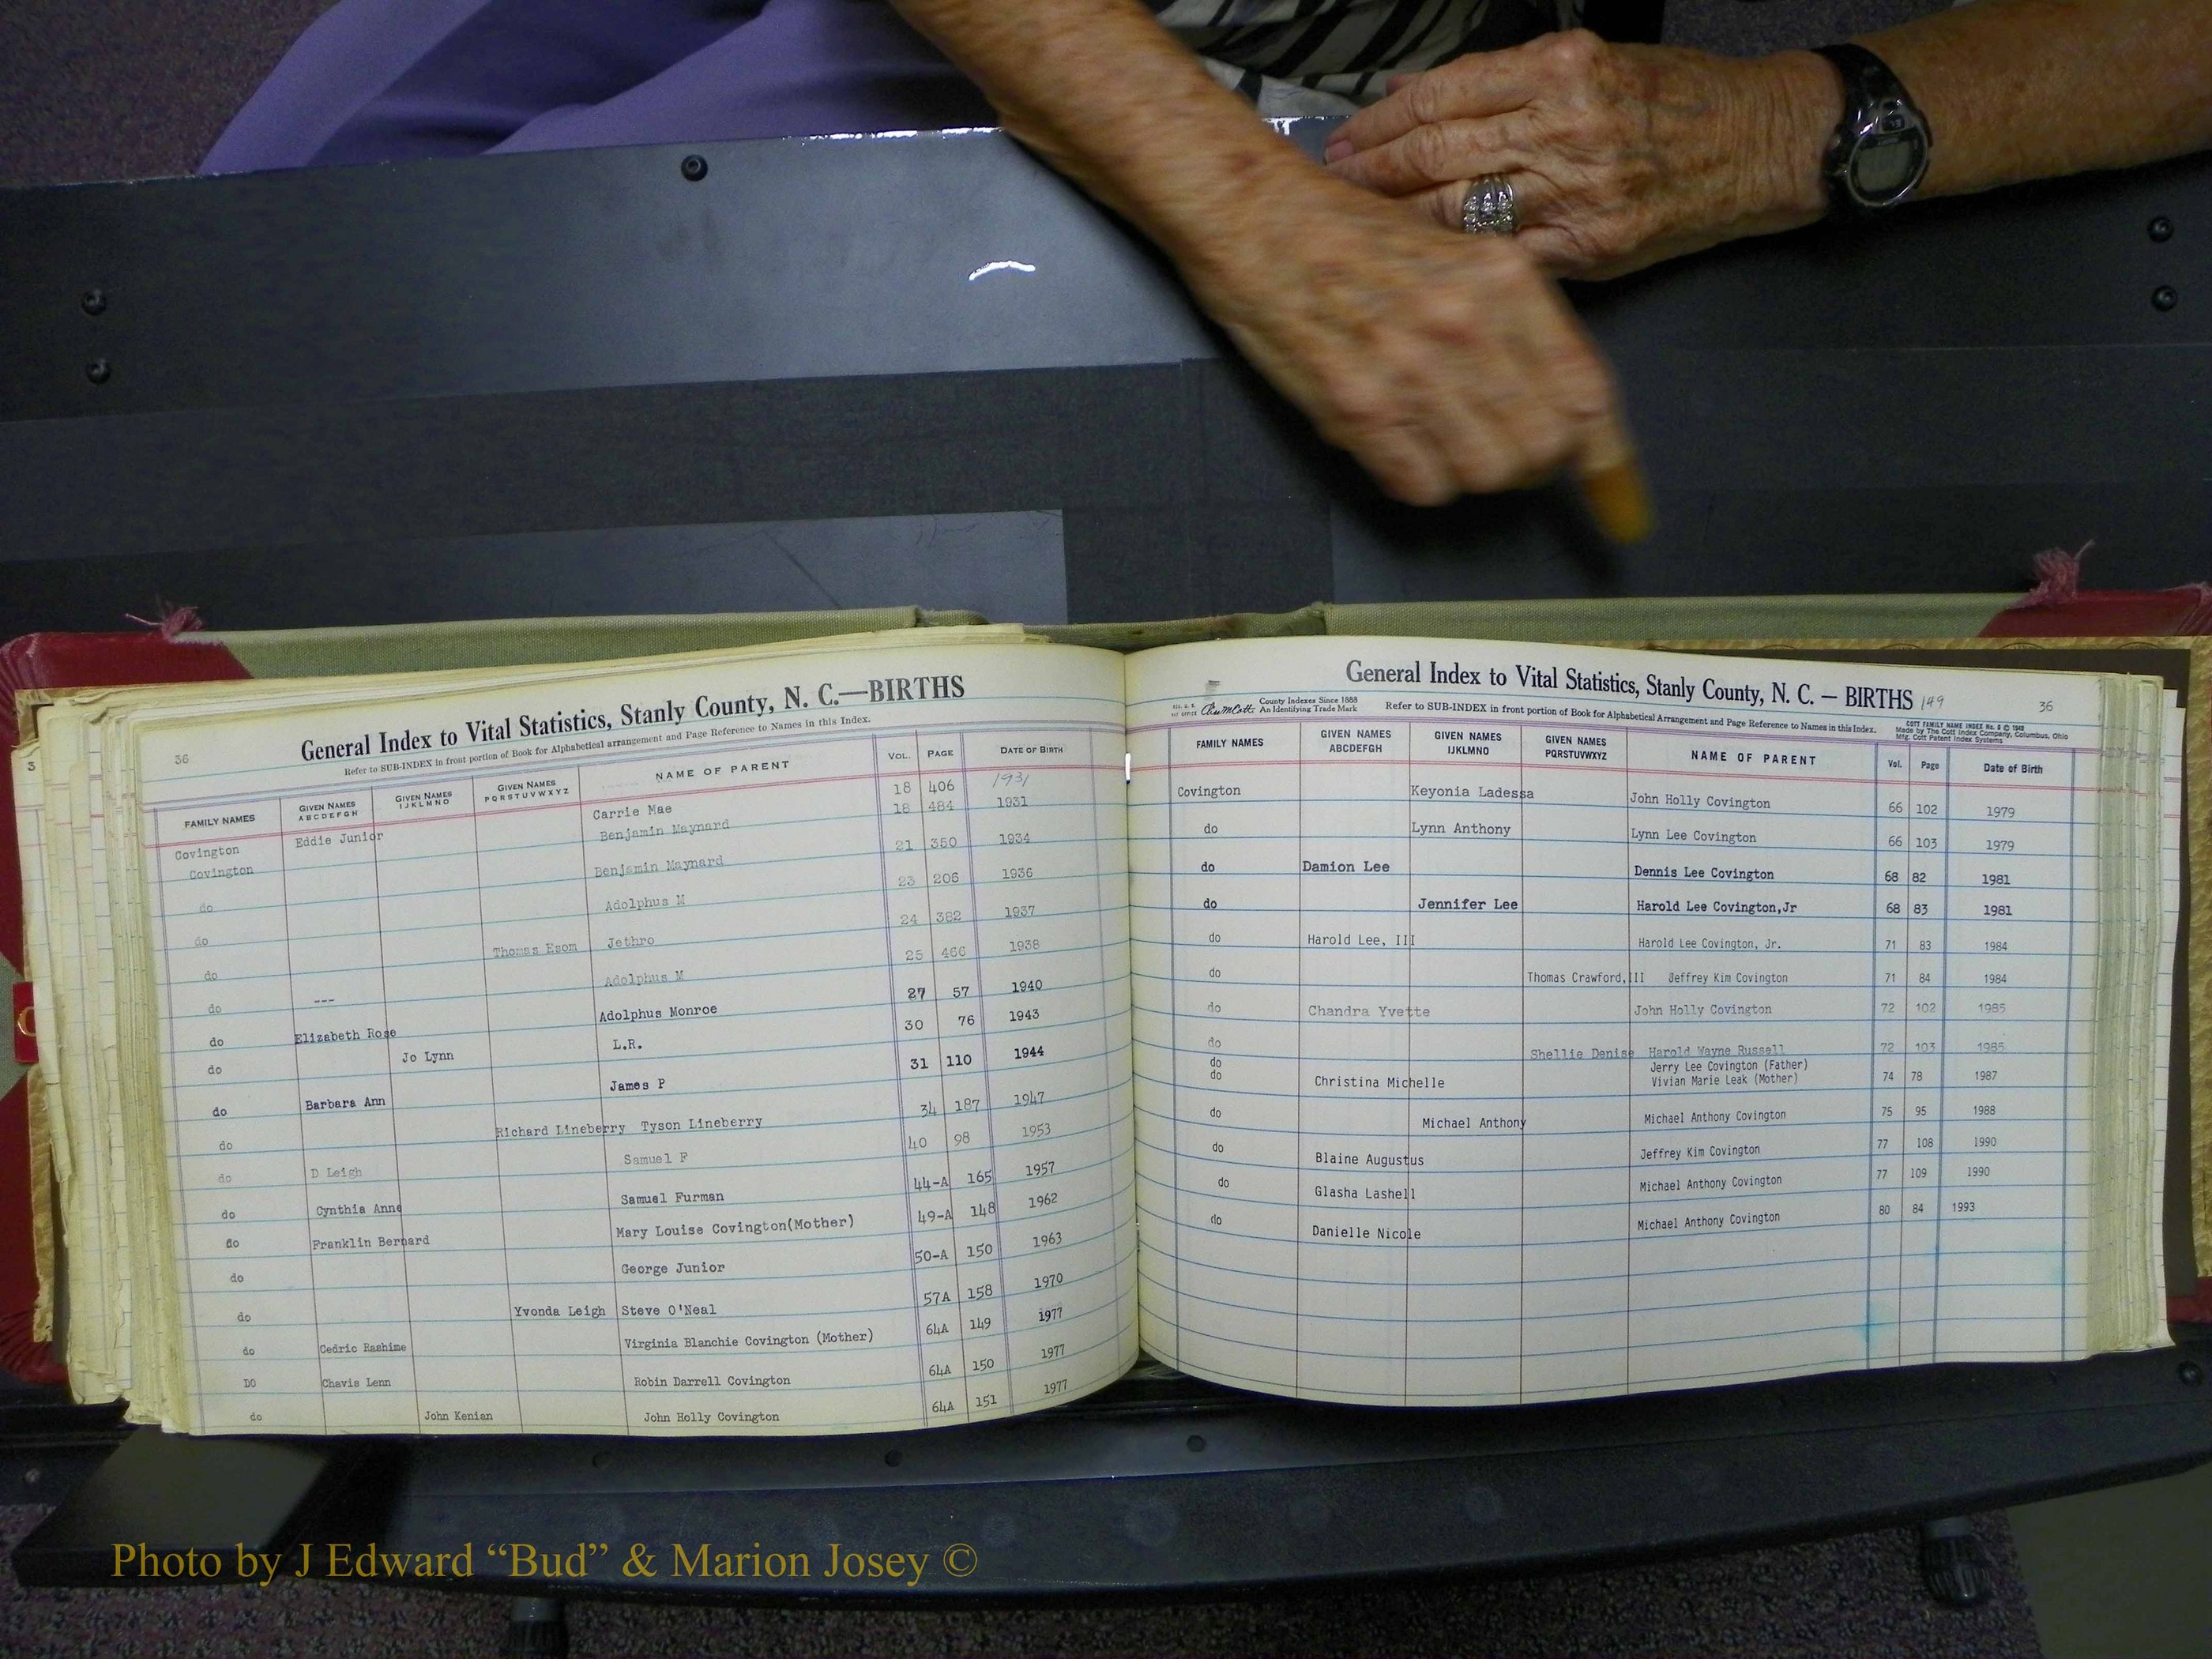 36
General Index to Vital Statistics, Stanly County, N. C.—BIRTHS
Refer to SUB-INDEX in front portion of Book for Alphabetical arrangement and Page Reference to Names in this Index.
FAMILY NAMES GIVEN NAMES ABCDEFGH GIVEN NAMES IJKLMNO GIVEN NAMES PQRSTUVWXYZ NAME OF PARENT VOL. PAGE DATE OF BIRTH
Covington Eddie Junior Carrie Mae 18 406 1931
Covington Benjamin Maynard 18 484 1931
do Benjamin Maynard 21 350 1934
do Adolphus M 23 206 1936
do Thomas Esom Jethro 24 382 1937
do --- Adolphus M 25 466 1938
do Elizabeth Rose Adolphus Monroe 27 57 1940
do Jo Lynn L.R. 30 76 1943
do Barbara Ann James P 31 110 1944
do Richard Lineberry Tyson Lineberry 34 187 1947
do D Leigh Samuel F 40 98 1953
do Cynthia Anne Samuel Furman 44-A 165 1957
do Franklin Bernard Mary Louise Covington(Mother) 49-A 148 1962
do George Junior 50-A 150 1963
do Yvonda Leigh Steve O'Neal 57A 158 1970
do Cedric Rashime Virginia Blanchie Covington (Mother) 64A 149 1977
DO Chavis Lenn Robin Darrell Covington 64A 150 1977
do John Kenian John Holly Covington 64A 151 1977
General Index to Vital Statistics, Stanly County, N. C. — BIRTHS 149 36
County Indexes Since 1888
An Identifying Trade Mark
Refer to SUB-INDEX in front portion of Book for Alphabetical Arrangement and Page Reference to Names in this Index.
COTT FAMILY NAME INDEX No. 8 © 1940
Made by The Cott Index Company, Columbus, Ohio
Mfg. Cott Patent Index Systems
FAMILY NAMES GIVEN NAMES ABCDEFGH GIVEN NAMES IJKLMNO GIVEN NAMES PQRSTUVWXYZ NAME OF PARENT Vol. Page Date of Birth
Covington Keyonia Ladessa John Holly Covington 66 102 1979
do Lynn Anthony Lynn Lee Covington 66 103 1979
do Damion Lee Dennis Lee Covington 68 82 1981
do Jennifer Lee Harold Lee Covington,Jr 68 83 1981
do Harold Lee, III Harold Lee Covington, Jr. 71 83 1984
do Thomas Crawford,III Jeffrey Kim Covington 71 84 1984
do Chandra Yvette John Holly Covington 72 102 1985
do Shellie Denise Harold Wayne Russell 72 103 1985
do Jerry Lee Covington (Father)
do Christina Michelle Vivian Marie Leak (Mother) 74 78 1987
do Michael Anthony Michael Anthony Covington 75 95 1988
do Blaine Augustus Jeffrey Kim Covington 77 108 1990
do Glasha Lashell Michael Anthony Covington 77 109 1990
do Danielle Nicole Michael Anthony Covington 80 84 1993
Photo by J Edward “Bud” & Marion Josey ©